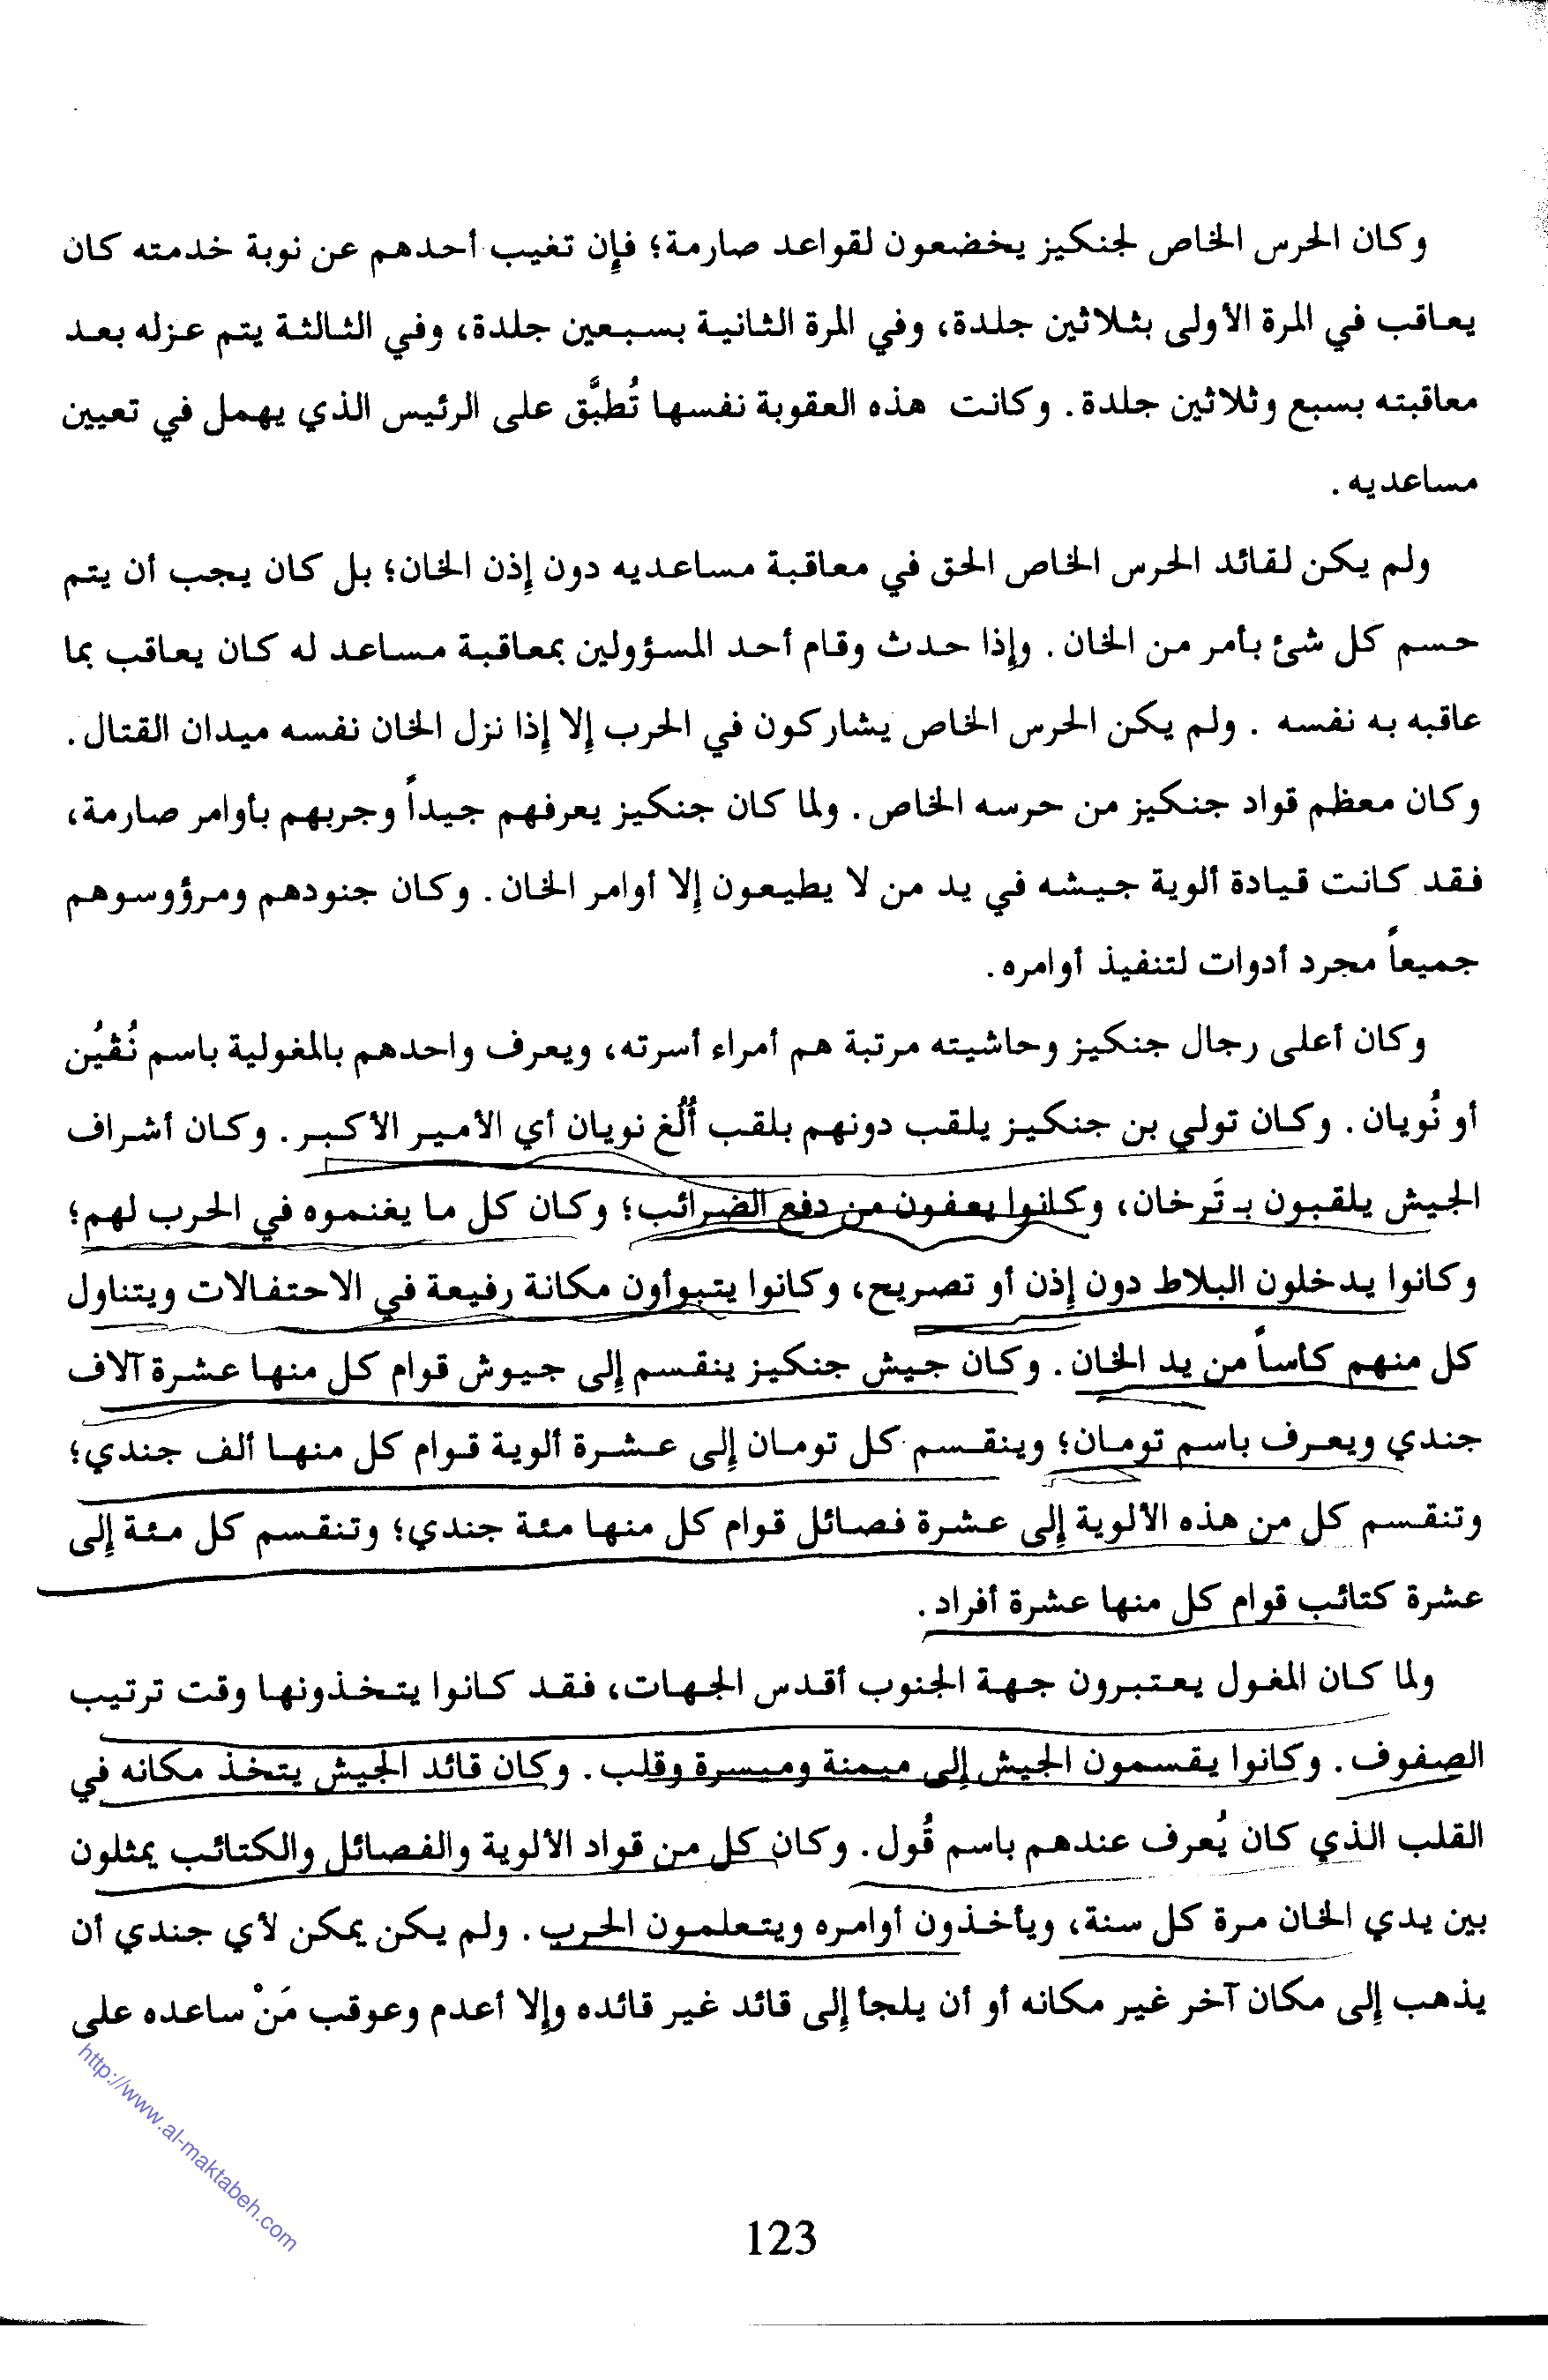 وكان الحرس الخاص لجنكيز يخضعون لقواعد صارمة؛ فإن تغيب أحدهم عن نوبة خدمته كان
يعاقب في المرة الأولى بثلاثين جلدة، وفي المرة الثانية بسبعين جلدة، وفي الثالثة يتم عزله بعد
معاقبته بسبع وثلاثين جلدة. وكانت هذه العقوبة نفسها تُطبَّق على الرئيس الذي يهمل في تعيين
مساعديه.
ولم يكن لقائد الحرس الخاص الحق في معاقبة مساعديه دون إذن الخان؛ بل كان يجب أن يتم
حسم كل شئ بأمر من الخان. وإذا حدث وقام أحد المسؤولين بمعاقبة مساعد له كان يعاقب بما
عاقبه به نفسه . ولم يكن الحرس الخاص يشاركون في الحرب إلا إذا نزل الخان نفسه ميدان القتال.
وكان معظم قواد جنكيز من حرسه الخاص. ولما كان جنكيز يعرفهم جيداً وجربهم بأوامر صارمة،
فقد كانت قيادة ألوية جيشه في يد من لا يطيعون إلا أوامر الخان. وكان جنودهم ومرؤوسوهم
جميعاً مجرد أدوات لتنفيذ أوامره.
وكان أعلى رجال جنكيز وحاشيته مرتبة هم أمراء أسرته، ويعرف واحدهم بالمغولية باسم نُڤيُن
أو نُويان. وكان تولي بن جنكيز يلقب دونهم بلقب أُلُغ نويان أي الأمير الأكبر. وكان أشراف
الجيش يلقبون بـ تَرخان، وكانوا يعفون من دفع الضرائب؛ وكان كل ما يغنموه في الحرب لهم؛
وكانوا يدخلون البلاط دون إذن أو تصريح، وكانوا يتبوأون مكانة رفيعة في الاحتفالات ويتناول
كل منهم كأساً من يد الخان. وكان جيش جنكيز ينقسم إلى جيوش قوام كل منها عشرة آلاف
جندي ويعرف باسم تومان؛ وينقسم كل تومان إلى عشرة ألوية قوام كل منها ألف جندي؛
وتنقسم كل من هذه الألوية إلى عشرة فصائل قوام كل منها مئة جندي؛ وتنقسم كل مئة إلى
عشرة كتائب قوام كل منها عشرة أفراد.
ولما كان المغول يعتبرون جهة الجنوب أقدس الجهات، فقد كانوا يتخذونها وقت ترتيب
الصفوف. وكانوا يقسمون الجيش إلى ميمنة وميسرة وقلب. وكان قائد الجيش يتخذ مكانه في
القلب الذي كان يُعرف عندهم باسم قُول. وكان كل من قواد الألوية والفصائل والكتائب يمثلون
بين يدي الخان مرة كل سنة، ويأخذون أوامره ويتعلمون الحرب. ولم يكن يمكن لأي جندي أن
يذهب إلى مكان آخر غير مكانه أو أن يلجأ إلى قائد غير قائده وإلا أعدم وعوقب مَنْ ساعده على
http://www.al-maktabeh.com
123